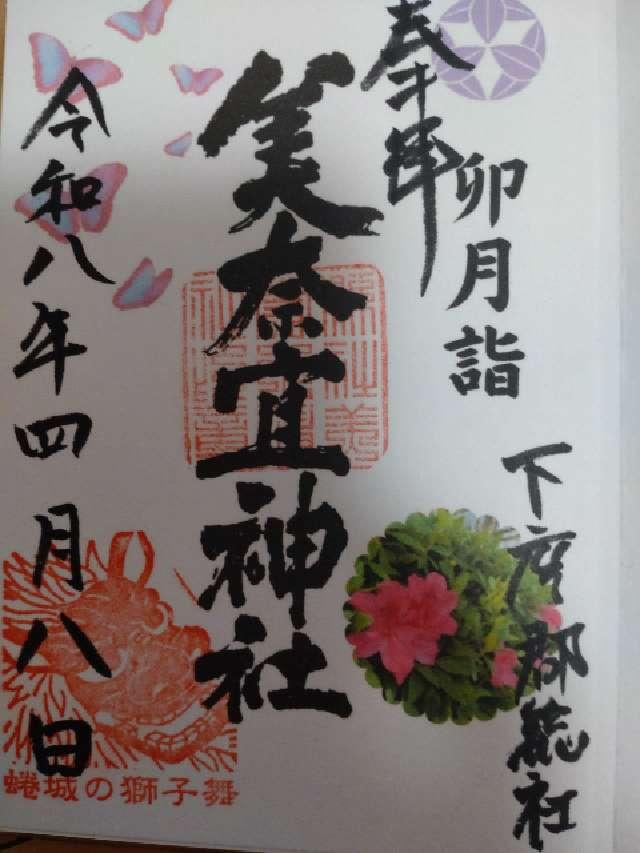 奉拝
卯月詣
下座郡総社
美奈宜神社
令和八年四月八日
蜷城の獅子舞